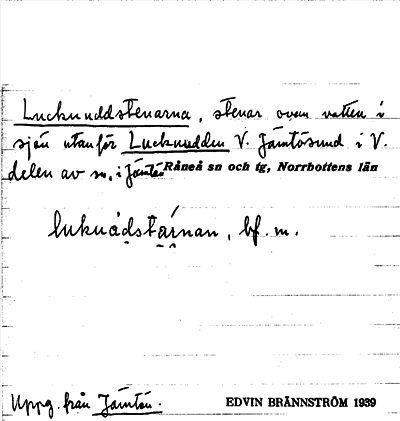 Luckuddstenarna, stenar ovan vatten i
sjön utanför Luckudden V. Jämtösund i V.
delen av sn, i Jämtön Råneå sn och tg, Norrbottens län
luknúdstárnan, bf. m.
Uppg. från Jämtön.
EDVIN BRÄNNSTRÖM 1939